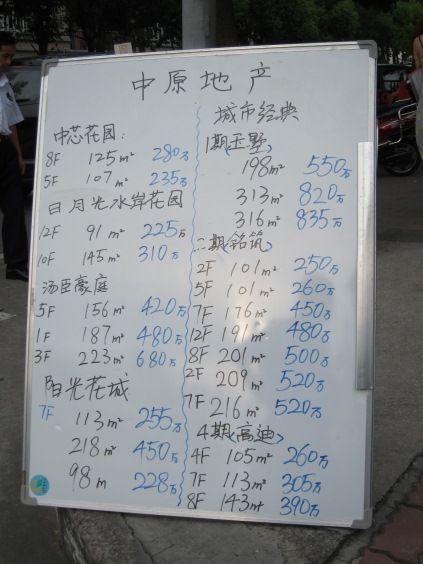 中原地产
中芯花园:
8F 125m² 280万
5F 107m² 235万
日月光水岸花园
12F 91m² 225万
10F 145m² 310万
汤臣豪庭
5F 156m² 420万
1F 187m² 480万
3F 223m² 680万
阳光花城
7F 113m² 255万
218m² 450万
98m 228万
城市经典
1期(玉墅)
198m² 550万
313m² 820万
316m² 835万
二期(铭筑)
2F 101m² 250万
5F 101m² 260万
7F 176m² 450万
12F 191m² 480万
8F 201m² 500万
2F 209m² 520万
7F 216m² 520万
4期(高迪)
4F 105m² 260万
7F 113m² 305万
8F 143m² 390万